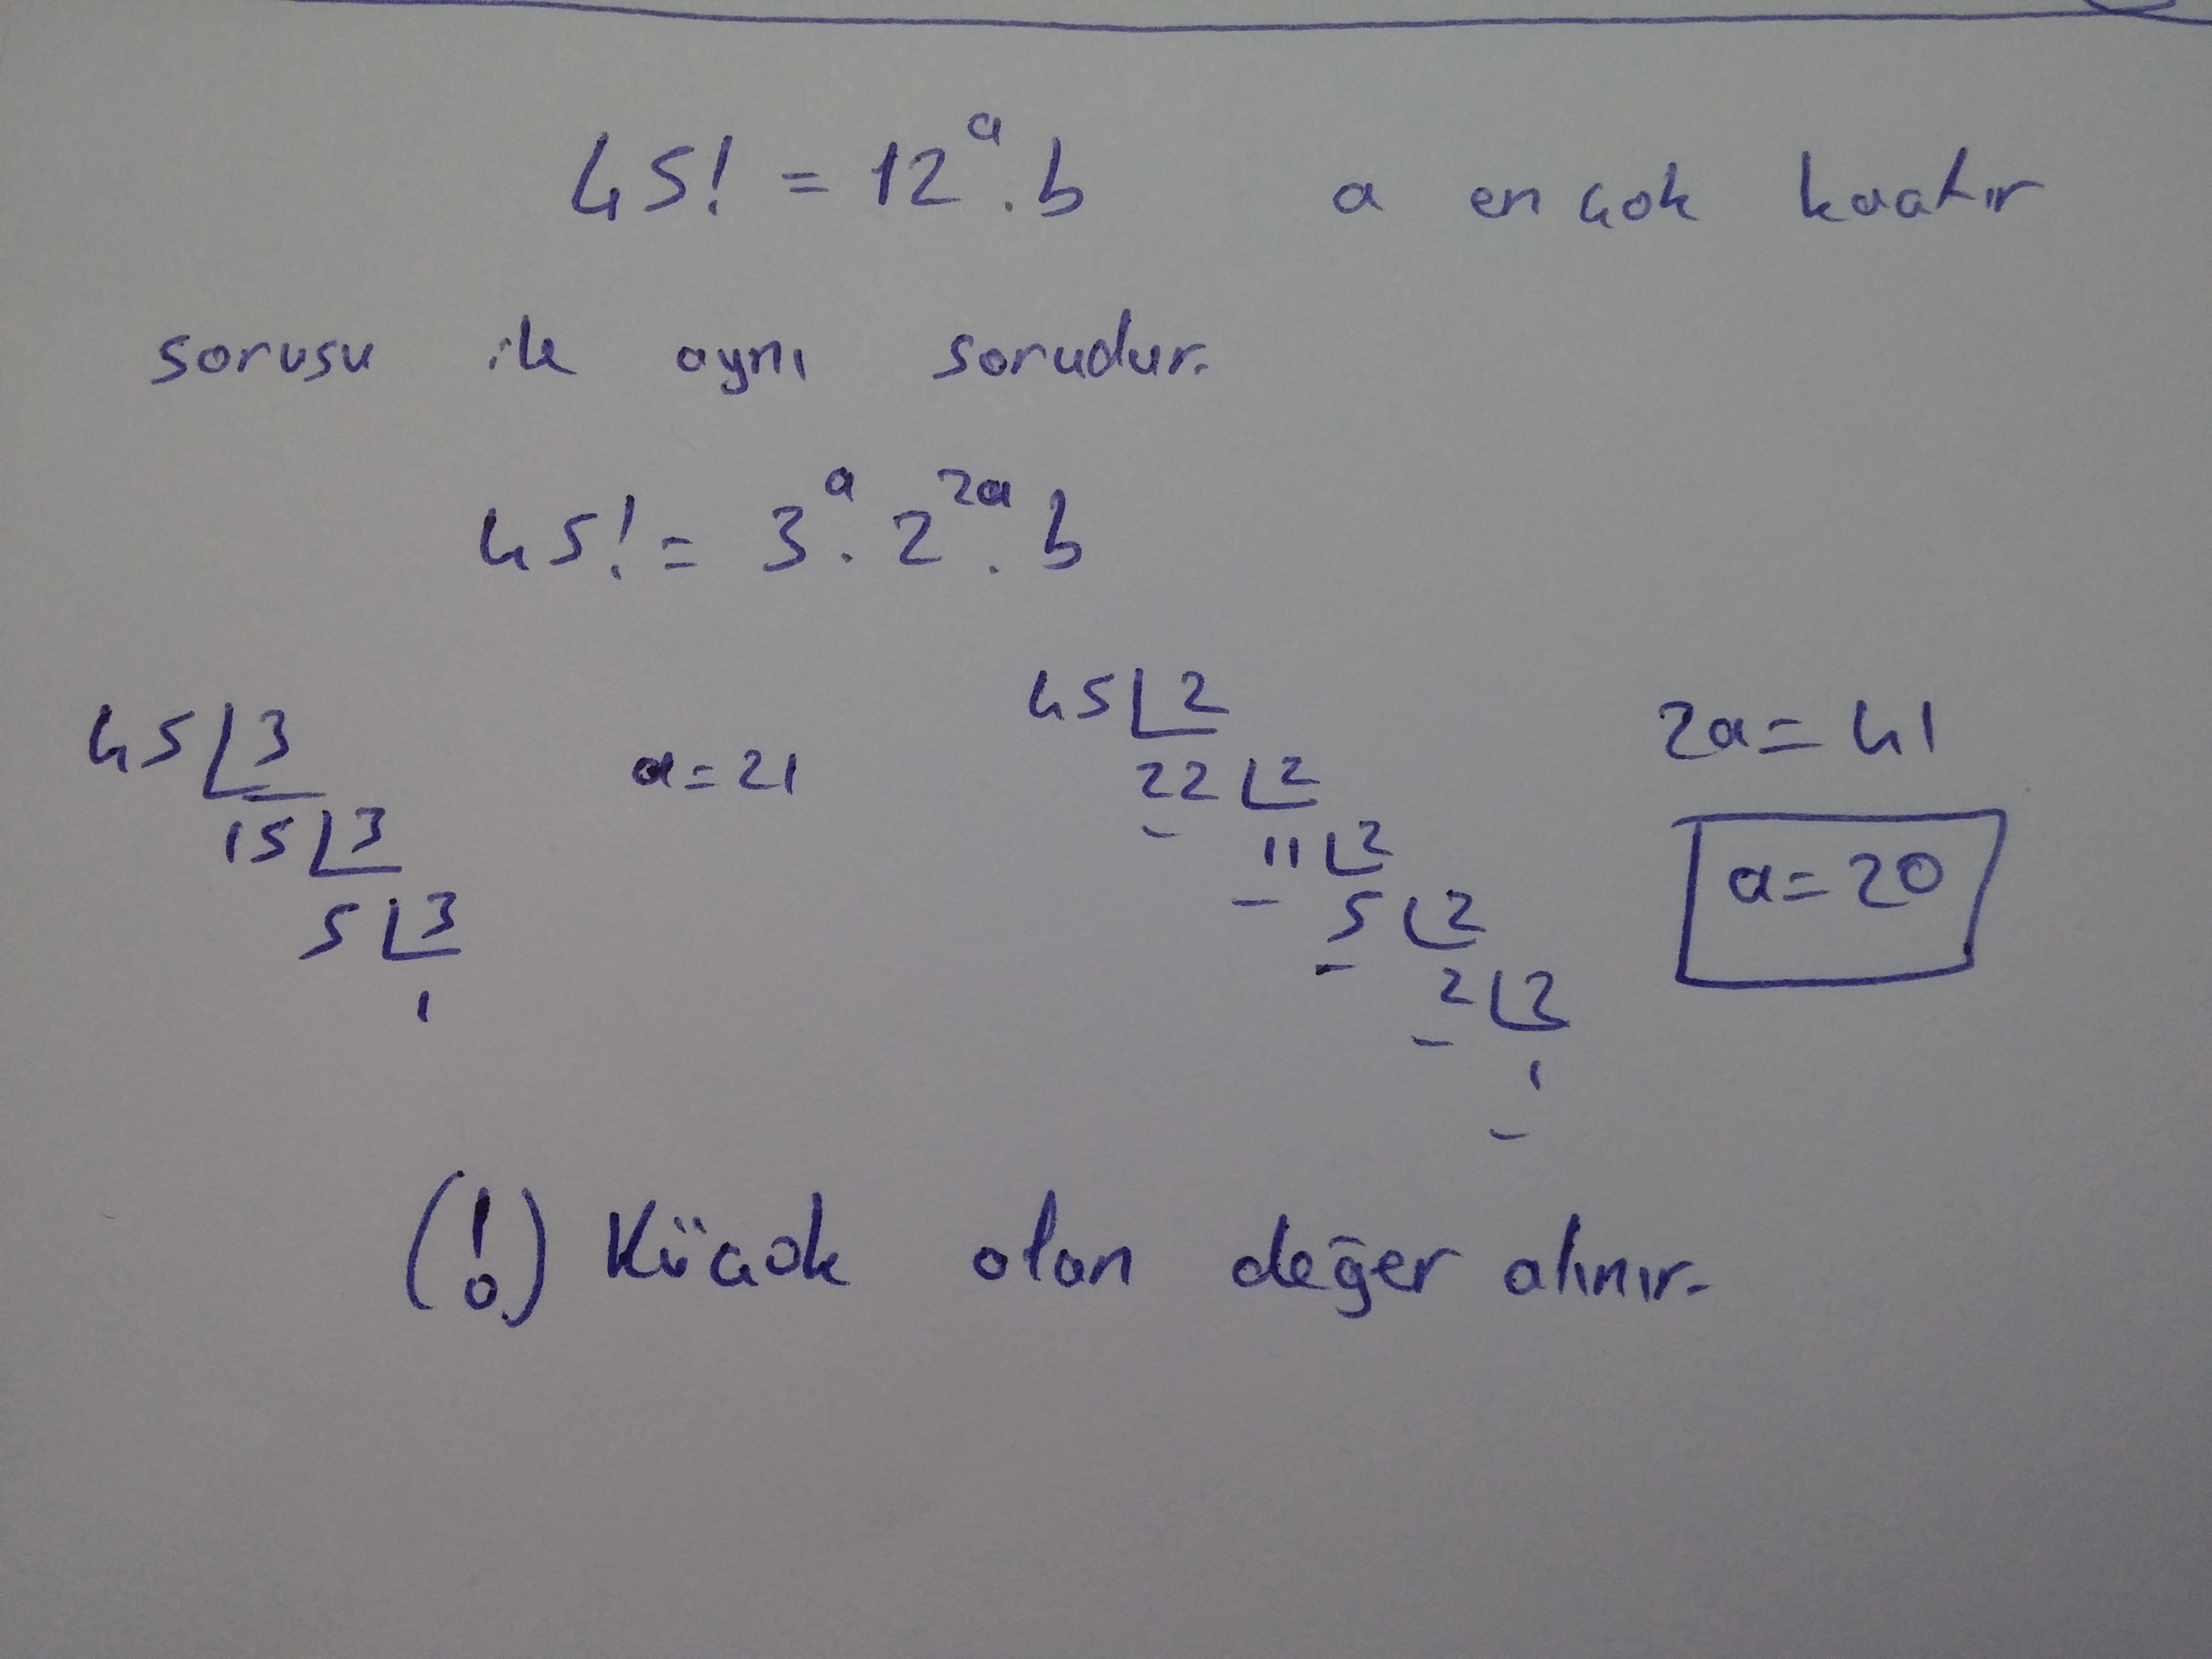 45! = 12^a . b a en çok kaçtır
sorusu ile aynı sorudur.
45! = 3^a . 2^2a . b
45 3
15 3
5 3
1
a = 21
45 2
22 2
11 2
5 2
2 2
1
2a = 41
a = 20
(!) Küçük olan değer alınır.